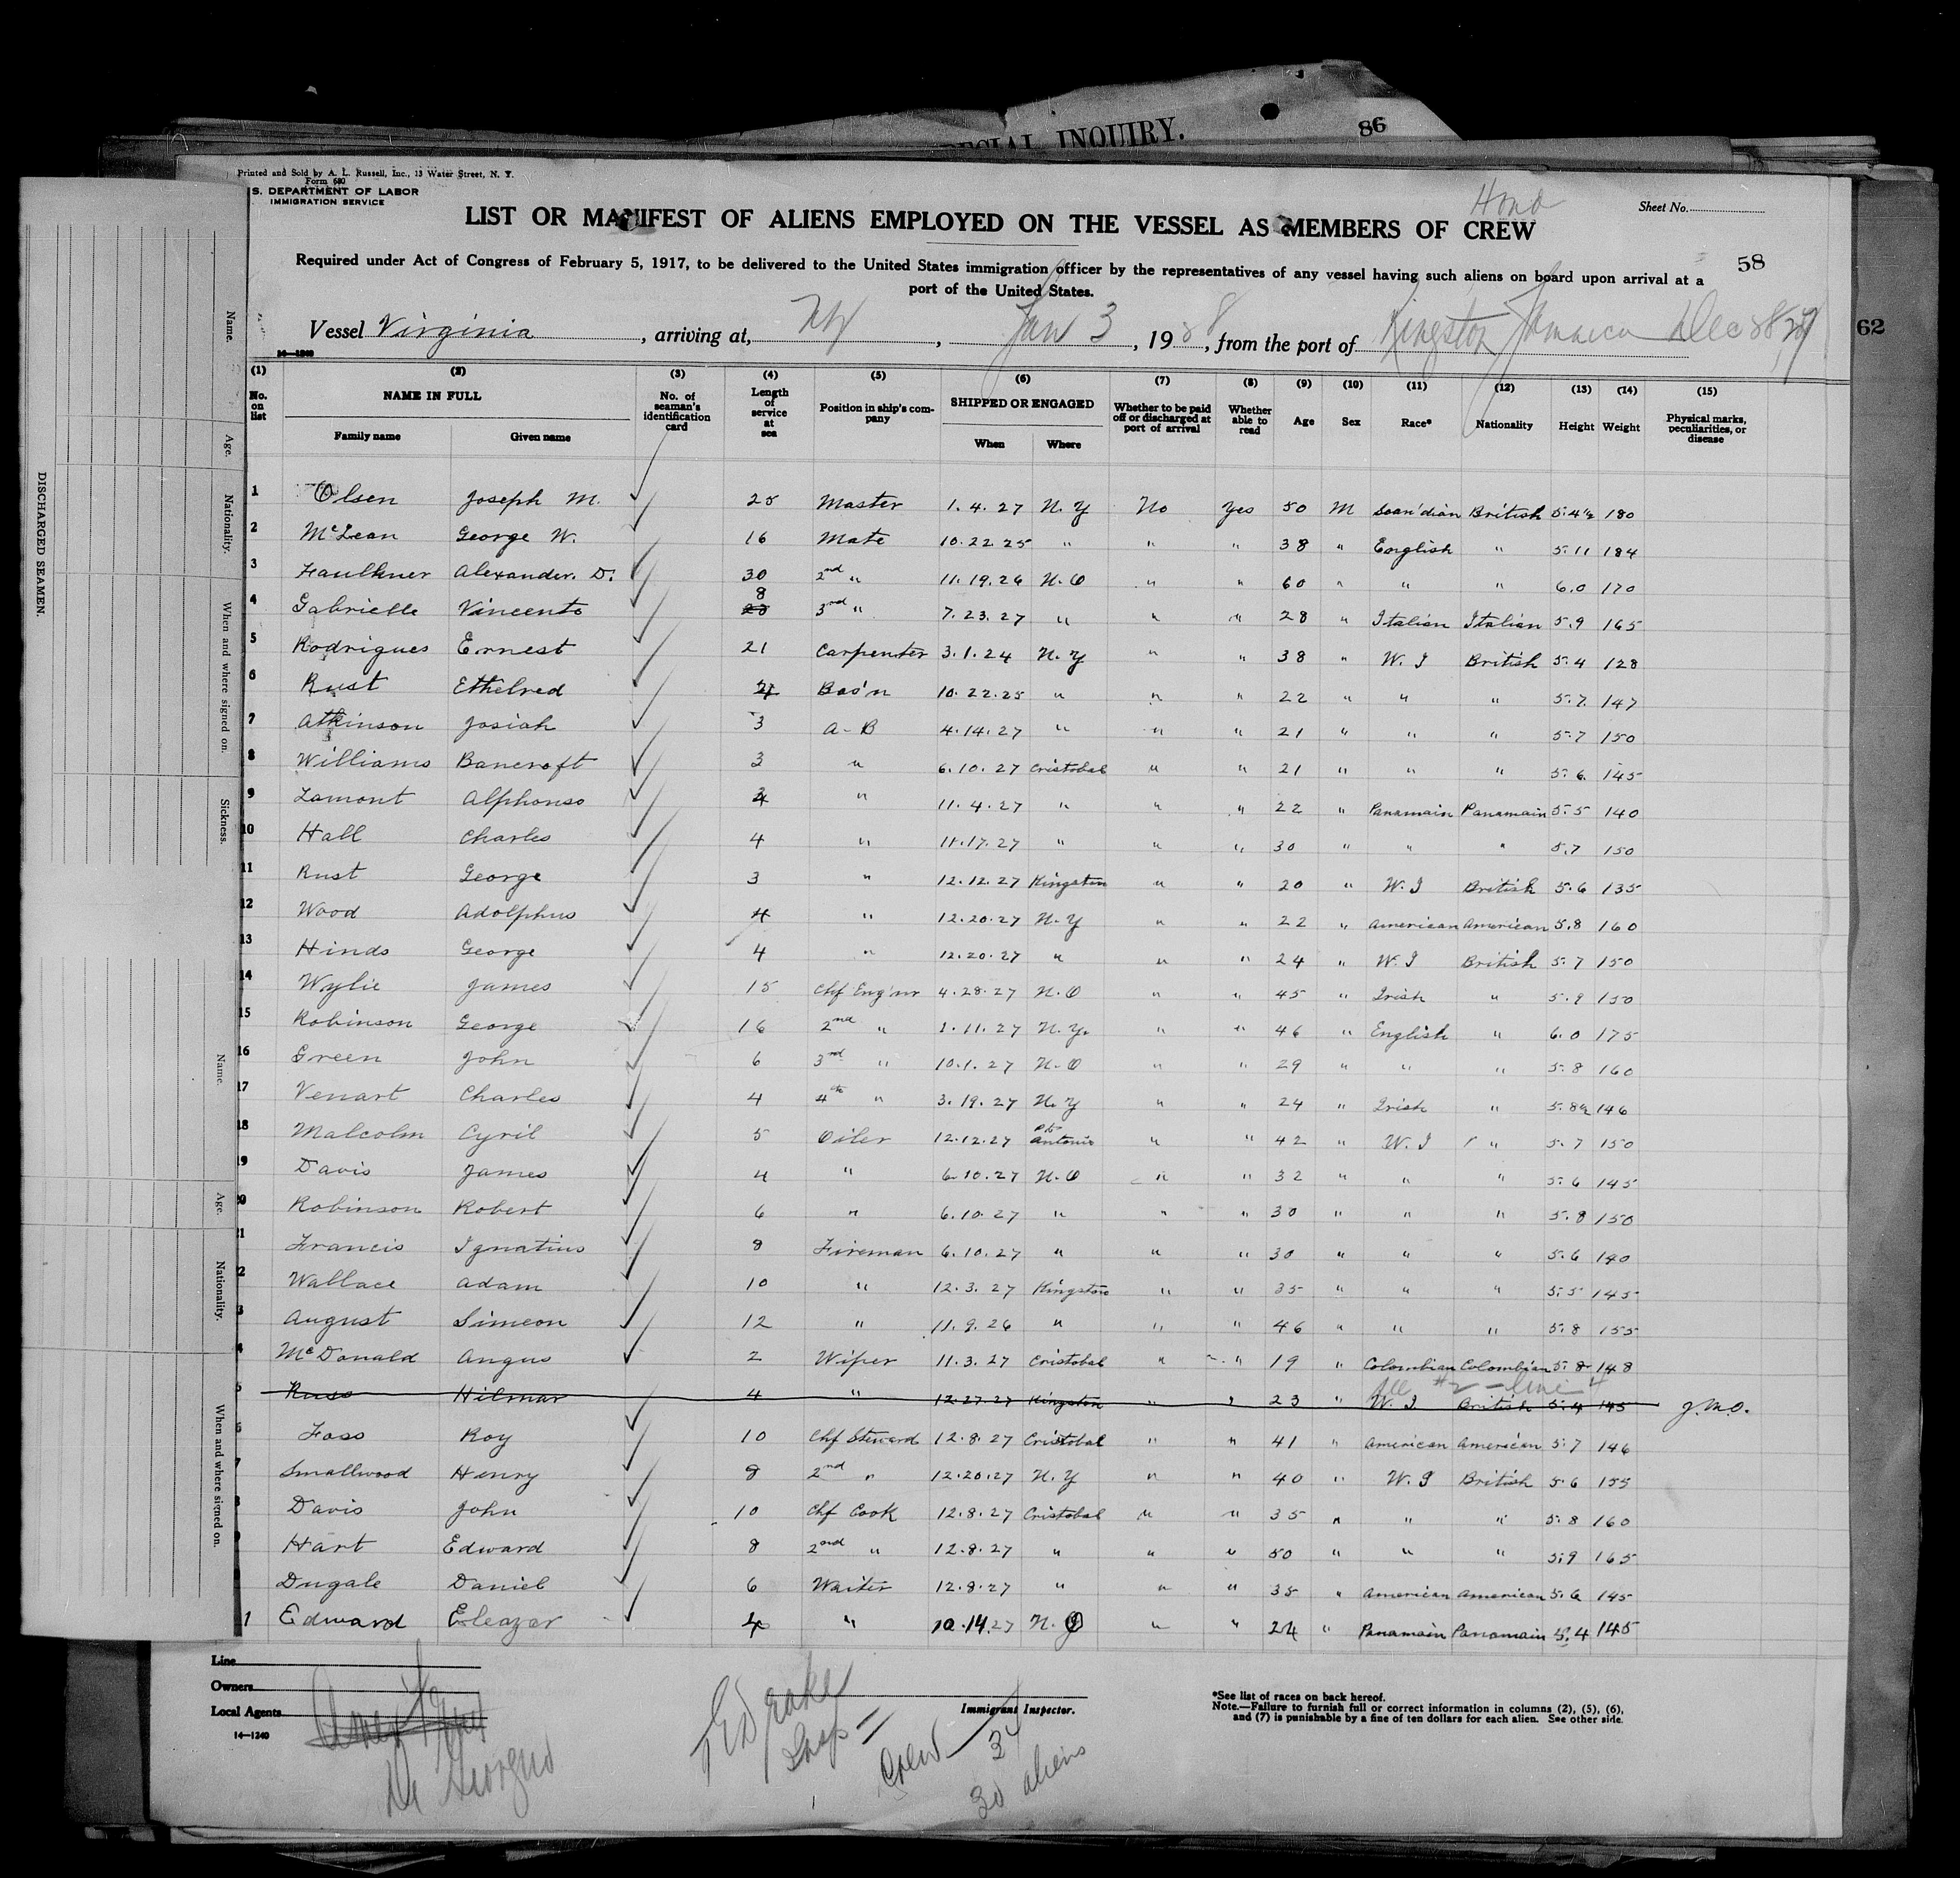 SPECIAL INQUIRY.
86
62
Printed and Sold by A. L. Russell, Inc., 13 Water Street, N. Y.
Form 680
S. DEPARTMENT OF LABOR
IMMIGRATION SERVICE
Hond
Sheet No.
LIST OR MANIFEST OF ALIENS EMPLOYED ON THE VESSEL AS MEMBERS OF CREW
58
Required under Act of Congress of February 5, 1917, to be delivered to the United States immigration officer by the representatives of any vessel having such aliens on board upon arrival at a
port of the United States.
Vessel Virginia, arriving at, NY, Jan 3, 1928, from the port of Kingston Jamaica Dec 28, 27
14—1240
(1) (2) (3) (4) (5) (6) (7) (8) (9) (10) (11) (12) (13) (14) (15)
No. on list NAME IN FULL No. of seaman's identification card Length of service at sea Position in ship's company SHIPPED OR ENGAGED Whether to be paid off or discharged at port of arrival Whether able to read Age Sex Race* Nationality Height Weight Physical marks, peculiarities, or disease
Family name Given name When Where
1 Olsen Joseph M. 25 Master 1.4.27 N.Y No Yes 50 M Scan'dian British 5.4½ 180
2 McLean George W. 16 Mate 10.22.25 " " " 38 " English " 5.11 184
3 Faulkner Alexander. D. 30 2nd " 11.19.26 N.O " " 60 " " " 6.0 170
4 Gabrielle Vincento 8 3rd " 7.23.27 " " " 28 " Italian Italian 5.9 165
5 Rodrigues Ernest 21 Carpenter 3.1.24 N.Y " " 38 " W.I British 5.4 128
6 Rust Ethelred 4 Bos'n 10.22.25 " " " 22 " " " 5.7 147
7 Atkinson Josiah 3 A-B 4.14.27 " " " 21 " " " 5.7 150
8 Williams Bancroft 3 " 6.10.27 Cristobal " " 21 " " " 5.6 145
9 Lamont Alphonso " 11.4.27 " " " 22 " Panamain Panamain 5.5 140
10 Hall Charles 4 " 11.17.27 " " " 30 " " " 5.7 150
11 Rust George 3 " 12.12.27 Kingston " " 20 " W.I British 5.6 135
12 Wood Adolphus 4 " 12.20.27 N.Y " " 22 " American American 5.8 160
13 Hinds George 4 " 12.20.27 " " " 24 " W.I British 5.7 150
14 Wylie James 15 Chf Eng'nr 4.28.27 N.O " " 45 " Irish " 5.9 150
15 Robinson George 16 2nd " 1.11.27 N.Y. " " 46 " English " 6.0 175
16 Green John 6 3rd " 10.1.27 N.O " " 29 " " " 5.8 160
17 Venart Charles 4 4th " 3.19.27 N.Y " " 24 " Irish " 5.8½ 146
18 Malcolm Cyril 5 Oiler 12.12.27 Pto Antonio " " 42 " W.I " 5.7 150
19 Davis James 4 " 6.10.27 N.O " " 32 " " " 5.6 145
20 Robinson Robert 6 " 6.10.27 " " " 30 " " " 5.8 150
1 Francis Ignatius 8 Fireman 6.10.27 " " " 30 " " " 5.6 140
2 Wallace Adam 10 " 12.3.27 Kingston " " 35 " " " 5.5 145
3 August Simeon 12 " 11.9.26 " " " 46 " " " 5.8 155
4 McDonald Angus 2 Wiper 11.3.27 Cristobal " " 19 " Colombian Colombian 5.8 148
See #2 - line 4
5 Russ Hilmar 4 " 12.27.27 Kingston " " 23 " W.I British 5.4 145 J.M.O.
6 Foss Roy 10 Chf Steward 12.8.27 Cristobal " " 41 " American American 5.7 146
7 Smallwood Henry 8 2nd " 12.20.27 N.Y " " 40 " W.I British 5.6 155
8 Davis John 10 Chf Cook 12.8.27 Cristobal " " 35 " " " 5.8 160
9 Hart Edward 8 2nd " 12.8.27 " " " 50 " " " 5.9 165
Dugale Daniel 6 Waiter 12.8.27 " " " 35 " American American 5.6 145
1 Edward Eleazer 4 " 10.14.27 N. " " 24 " Panamain Panamain 5.4 145
Line
Owners
Local Agents
14—1240
Di Giorgio
TE Drake
Insp
Immigrant Inspector.
Crew 34
30 aliens
*See list of races on back hereof.
Note.—Failure to furnish full or correct information in columns (2), (5), (6),
and (7) is punishable by a fine of ten dollars for each alien. See other side.
DISCHARGED SEAMEN.
Name.
Age.
Nationality.
When and where signed on.
Sickness.
Name.
Age.
Nationality.
When and where signed on.